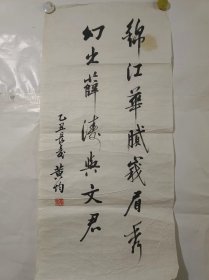 錦江華膩峨眉秀
幻出薛濤與文君
乙丑長春黄均